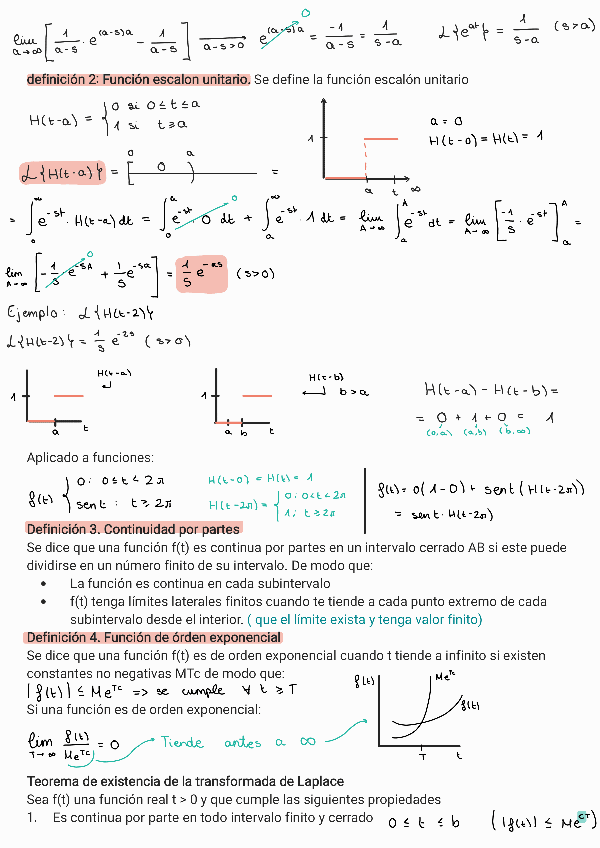 lim a→∞ [ 1/(a-s) · e^(a-s)a - 1/(a-s) ] —a-s>0→ e^(a-s)a 0 = -1/(a-s) = 1/(s-a) L{e^at} = 1/(s-a) (s>a)
definición 2: Función escalon unitario. Se define la función escalón unitario
H(t-a) = { 0 si 0≤t≤a
1 si t≥a
1 a t ∞
a = 0
H(t-0) = H(t) = 1
L{H(t-a)} = [ 0 0 a ) =
= ∫₀^∞ e^-st · H(t-a) dt = ∫₀^a e^-st · 0 dt 0 + ∫ₐ^∞ e^-st · 1 dt = lim A→∞ ∫ₐ^A e^-st dt = lim A→∞ [ -1/s · e^-st ]ₐ^A =
lim A→∞ [ -1/s e^-sA 0 + 1/s e^-sa ] = 1/s e^-as (s>0)
Ejemplo: L{H(t-2)}
L{H(t-2)} = 1/s e^-2s (s>0)
H(t-a) 1 a t
H(t-b) b>a 1 a b t
H(t-a) - H(t-b) =
= 0 + 1 + 0 = 1
(0,a) (a,b) (b,∞)
Aplicado a funciones:
f(t) { 0 : 0≤t<2π
sent : t≥2π
H(t-0) = H(t) = 1
H(t-2π) = { 0 ; 0<t<2π
1 ; t≥2π
f(t) = 0(1-0) + sent(H(t-2π))
= sent · H(t-2π)
Definición 3. Continuidad por partes
Se dice que una función f(t) es continua por partes en un intervalo cerrado AB si este puede
dividirse en un número finito de su intervalo. De modo que:
• La función es continua en cada subintervalo
• f(t) tenga límites laterales finitos cuando te tiende a cada punto extremo de cada
subintervalo desde el interior. ( que el límite exista y tenga valor finito)
Definición 4. Función de órden exponencial
Se dice que una función f(t) es de orden exponencial cuando t tiende a infinito si existen
constantes no negativas MTc de modo que:
|f(t)| ≤ Me^Tc => se cumple ∀ t ≥ T
Si una función es de orden exponencial:
lim T→∞ f(t)/Me^Tc = 0 → Tiende antes a ∞
f(t) Me^Tc f(t) T t
Teorema de existencia de la transformada de Laplace
Sea f(t) una función real t > 0 y que cumple las siguientes propiedades
1. Es continua por parte en todo intervalo finito y cerrado 0 ≤ t ≤ b (|f(t)| ≤ Me^CT)